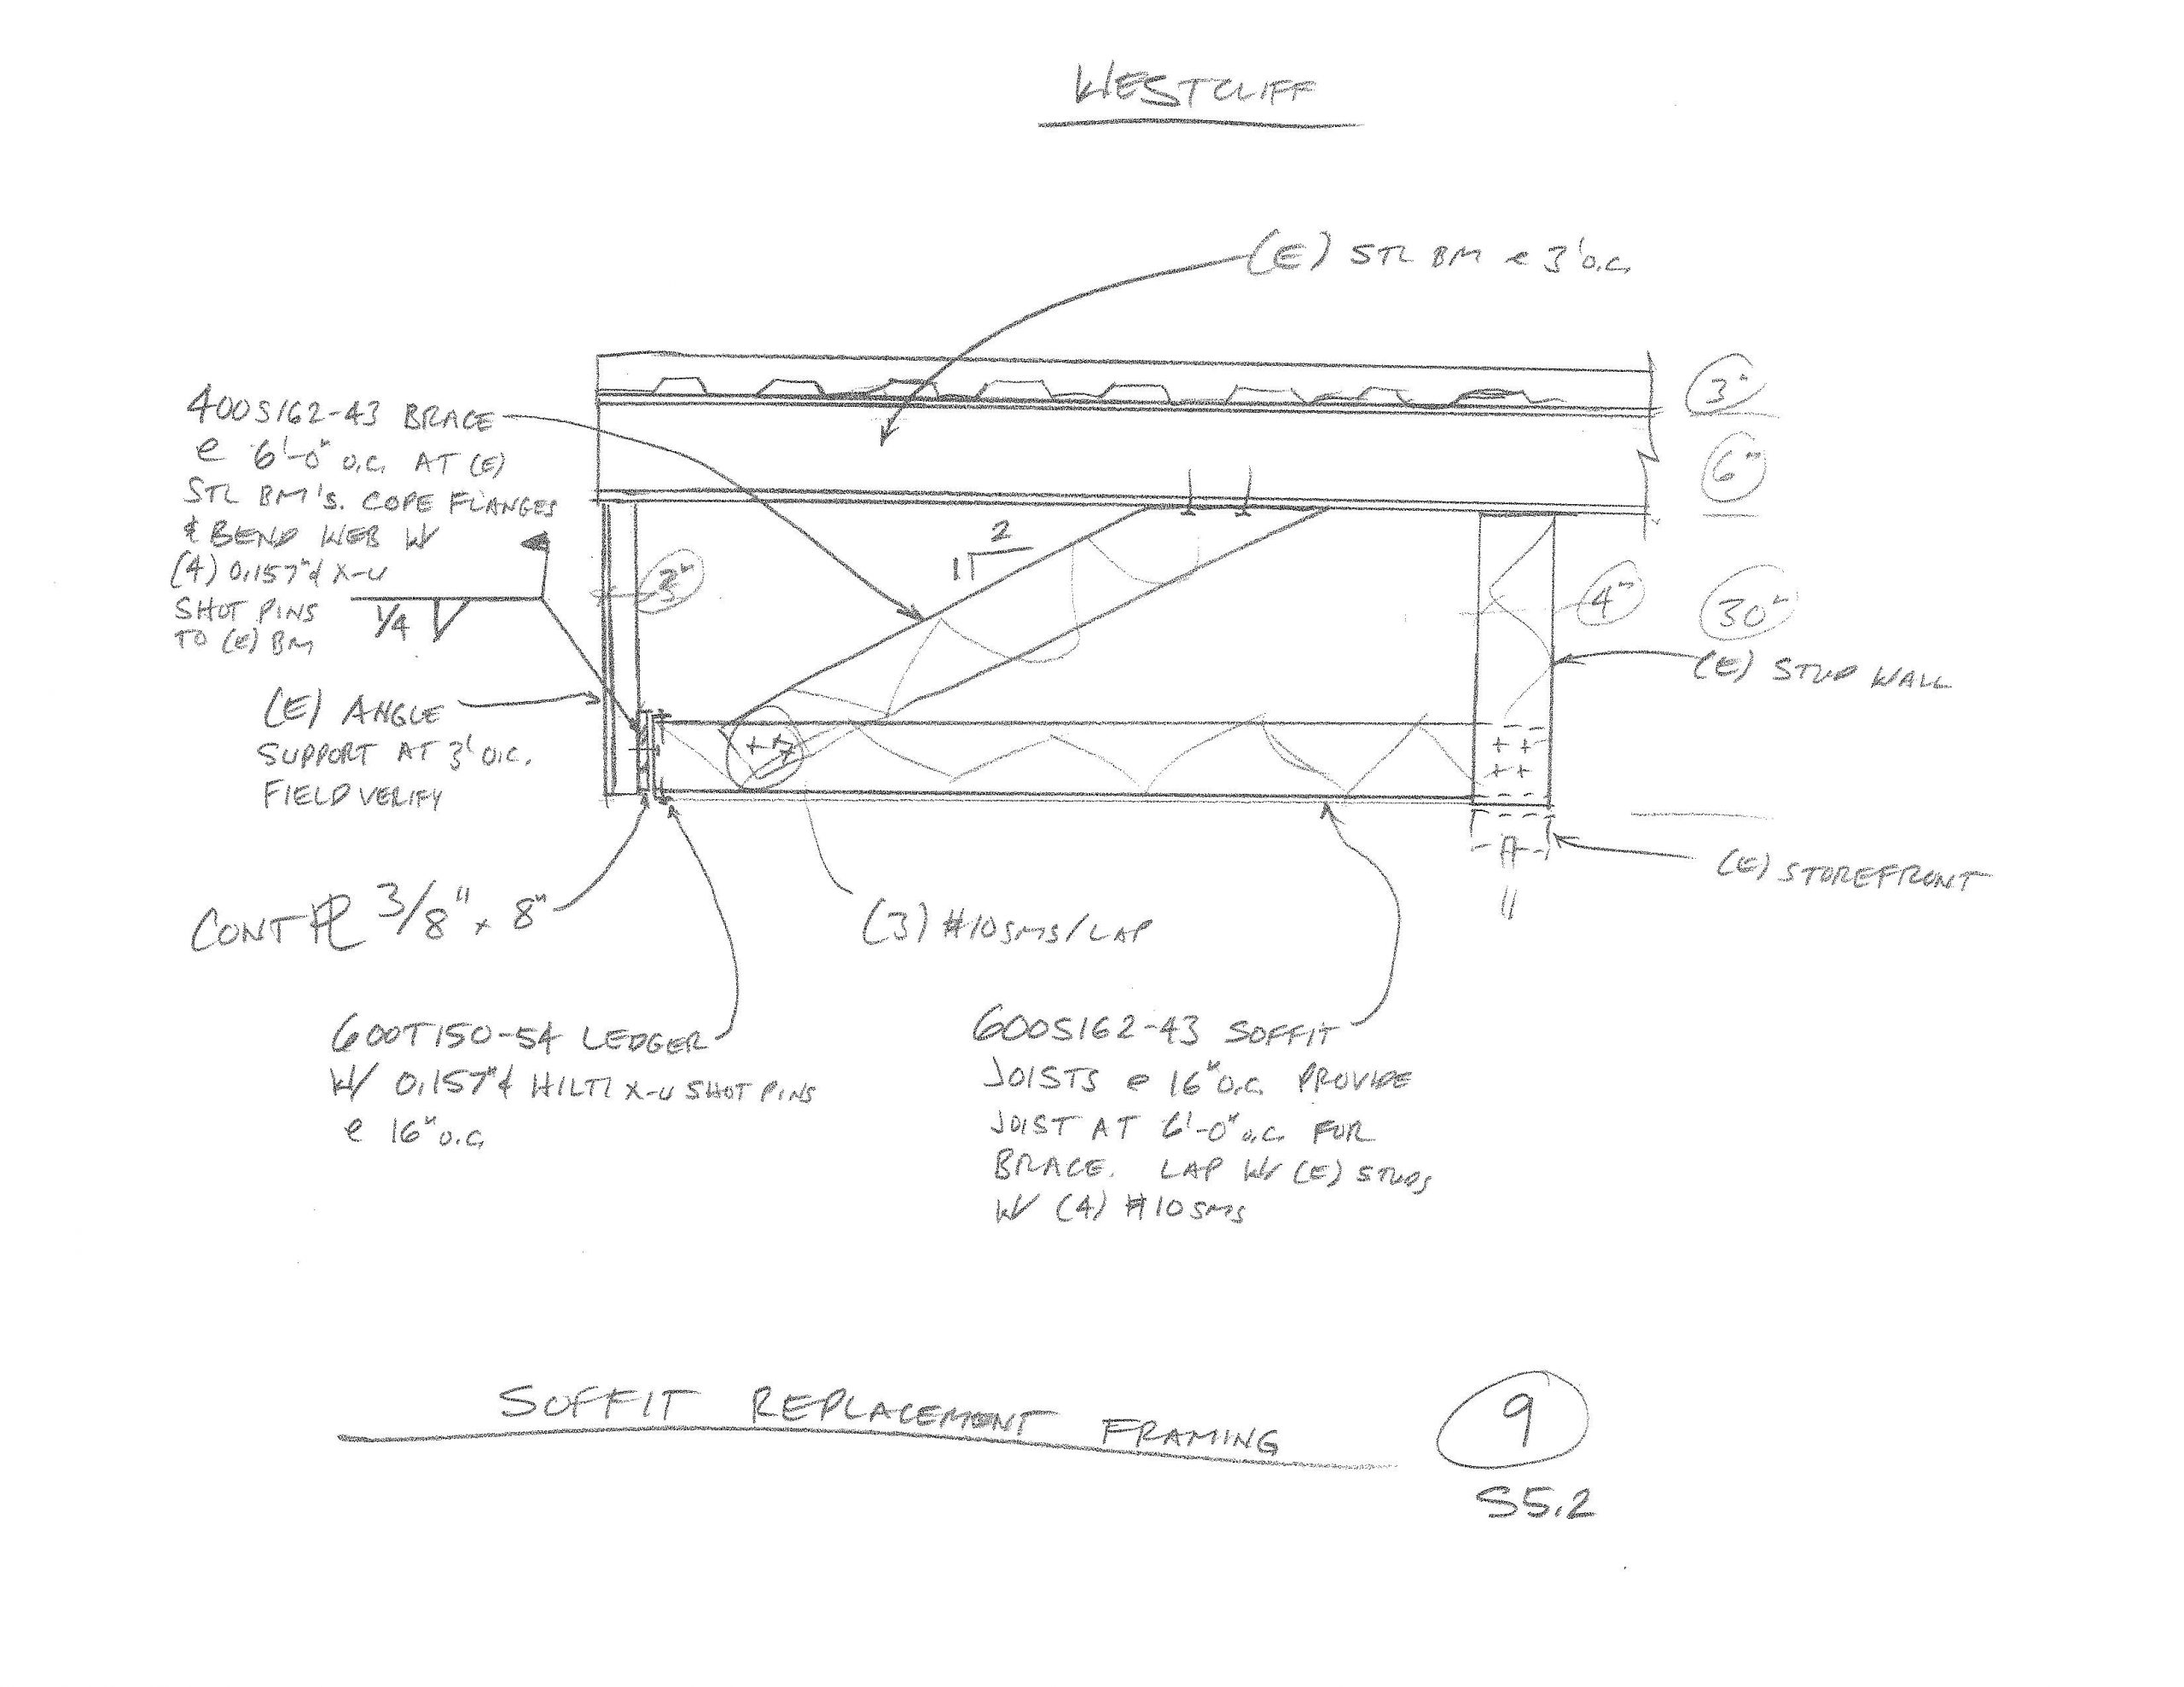 WESTCLIFF
(E) STL BM @ 3' O.C.
3"
6"
400S162-43 BRACE
@ 6'-0" O.C. AT (E)
STL BM'S. COPE FLANGES
& BEND WEB W/
(4) 0.157"φ X-U
SHOT PINS
TO (E) BM
1/4
2
1
3"
4"
30"
(E) STUD WALL
(E) ANGLE
SUPPORT AT 3' O.C.
FIELD VERIFY
(E) STOREFRONT
CONT PL 3/8" x 8"
(3) #10 SMS/LAP
600T150-54 LEDGER
W/ 0.157"φ HILTI X-U SHOT PINS
@ 16" O.C.
600S162-43 SOFFIT
JOISTS @ 16" O.C. PROVIDE
JOIST AT 6'-0" O.C. FOR
BRACE. LAP W/ (E) STUDS
W/ (4) #10 SMS
SOFFIT REPLACEMENT FRAMING
9
S5.2